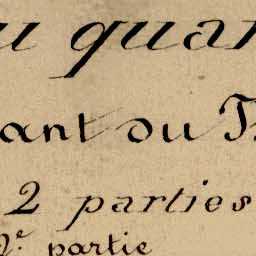 u quar
ant du T
2 parties
2e partie